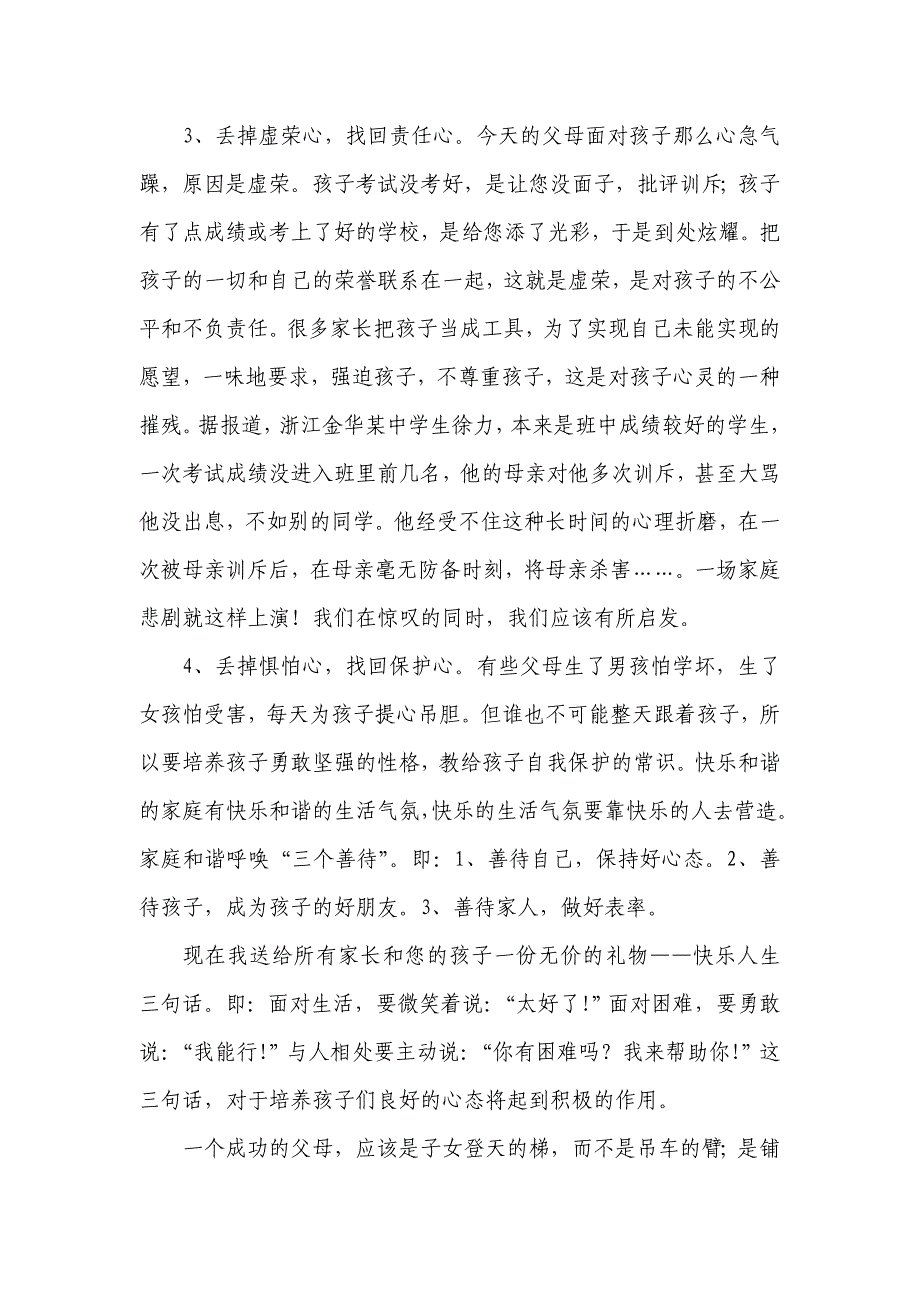 3、丢掉虚荣心，找回责任心。今天的父母面对孩子那么心急气
躁，原因是虚荣。孩子考试没考好，是让您没面子，批评训斥；孩子
有了点成绩或考上了好的学校，是给您添了光彩，于是到处炫耀。把
孩子的一切和自己的荣誉联系在一起，这就是虚荣，是对孩子的不公
平和不负责任。很多家长把孩子当成工具，为了实现自己未能实现的
愿望，一味地要求，强迫孩子，不尊重孩子，这是对孩子心灵的一种
摧残。据报道，浙江金华某中学生徐力，本来是班中成绩较好的学生，
一次考试成绩没进入班里前几名，他的母亲对他多次训斥，甚至大骂
他没出息，不如别的同学。他经受不住这种长时间的心理折磨，在一
次被母亲训斥后，在母亲毫无防备时刻，将母亲杀害……。一场家庭
悲剧就这样上演！我们在惊叹的同时，我们应该有所启发。
4、丢掉惧怕心，找回保护心。有些父母生了男孩怕学坏，生了
女孩怕受害，每天为孩子提心吊胆。但谁也不可能整天跟着孩子，所
以要培养孩子勇敢坚强的性格，教给孩子自我保护的常识。快乐和谐
的家庭有快乐和谐的生活气氛，快乐的生活气氛要靠快乐的人去营造。
家庭和谐呼唤“三个善待”。即：1、善待自己，保持好心态。2、善
待孩子，成为孩子的好朋友。3、善待家人，做好表率。
现在我送给所有家长和您的孩子一份无价的礼物——快乐人生
三句话。即：面对生活，要微笑着说：“太好了！”面对困难，要勇敢
说：“我能行！”与人相处要主动说：“你有困难吗？我来帮助你！”这
三句话，对于培养孩子们良好的心态将起到积极的作用。
一个成功的父母，应该是子女登天的梯，而不是吊车的臂；是铺